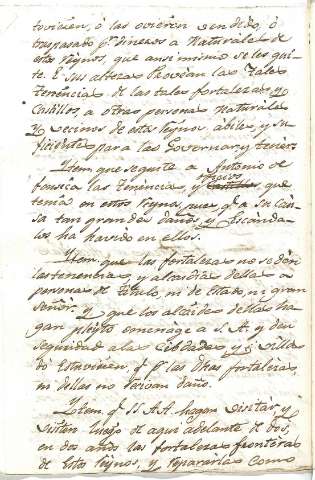 tovieren, ó las ovieren vendido, ó
traspasado pr. dineros a naturales de
estos Reynos, que ansimismo se les qui-
te. E sus altezas Provean las tales
tenencias de las tales fortalezas, y
Castillos, a otras personas naturales
y vecinos de estos Reynos, abiles, y su-
ficientes para las Governar y tener.
Item que se quite a Antonio de
fonseca las tenencias, y oficios, que
tenia en estos Reynos, pues q.e a su cau-
sa tan grandes daños, y Escanda-
los ha havido en ellos.
Item que las fortalezas no se den
las tenencias, y alcaidias dellas a
personas de titulo, ni de Estado, ni gran
Señor. y que los alcaides dellas ha-
gan pleyto omenage a S. A. y den
seguridad a las Cibdades, y Villas
do Estuvieren, q.e pr. las dhas fortalezas
ni dellas no Vernan daño.
Item q.e SS. AA. hagan visitar, y
visiten luego de aqui adelante de dos,
en dos años las fortalezas fronteras
de Estos Reynos, y repararlas como